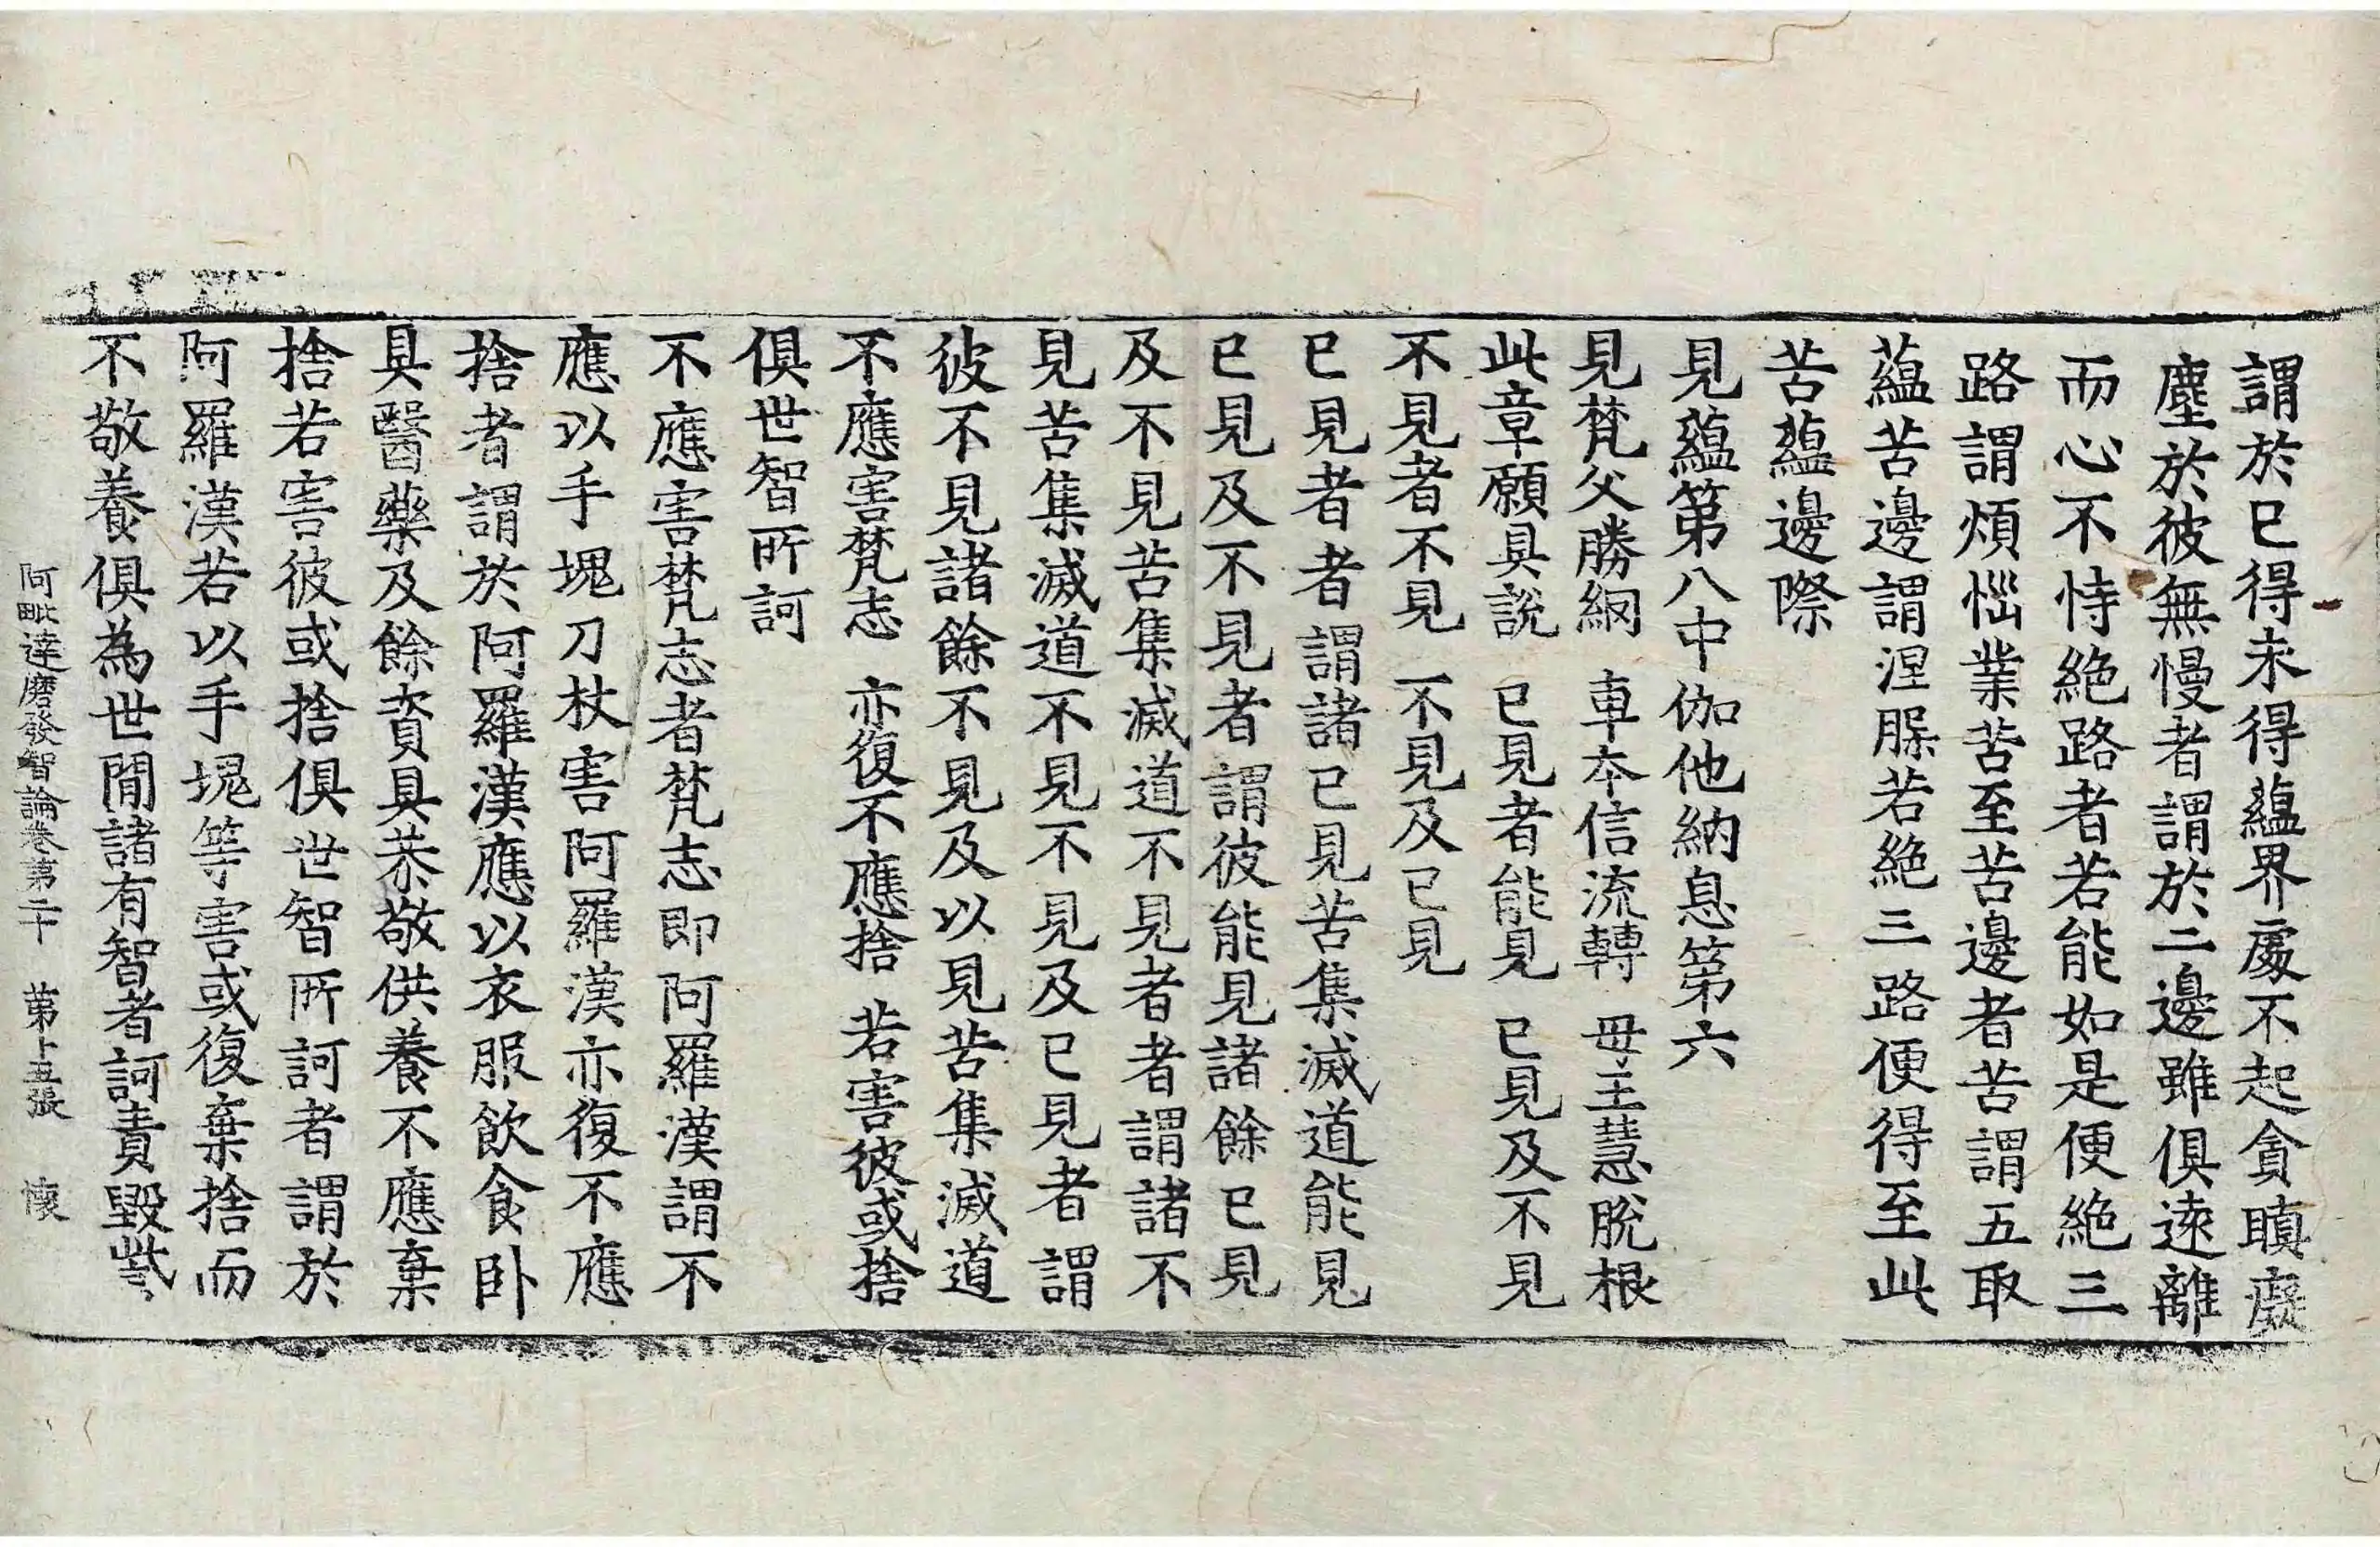 謂於已得未得蘊界處不起貪瞋癡
塵於彼無慢者謂於二邊雖俱遠離
而心不恃絶路者若能如是便絶三
路謂煩惱業苦至苦邊者苦謂五取
蘊苦邊謂涅槃若絶三路便得至此
苦蘊邊際
見蘊第八中伽他納息第六
見梵父勝網　車本信流轉　母王慧脫根
此章願具說　已見者能見　已見及不見
不見者不見　不見及已見
已見者者謂諸已見苦集滅道能見
已見及不見者謂彼能見諸餘已見
及不見苦集滅道不見者者謂諸不
見苦集滅道不見不見及已見者謂
彼不見諸餘不見及以見苦集滅道
不應害梵志　亦復不應捨　若害彼或捨
俱世智所訶
不應害梵志者梵志即阿羅漢謂不
應以手塊刀杖害阿羅漢亦復不應
捨者謂於阿羅漢應以衣服飲食臥
具醫藥及餘資具恭敬供養不應棄
捨若害彼或捨俱世智所訶者謂於
阿羅漢若以手塊等害或復棄捨而
不敬養俱為世間諸有智者訶責毀呰
阿毗達磨發智論卷第二十　第十五張　懷